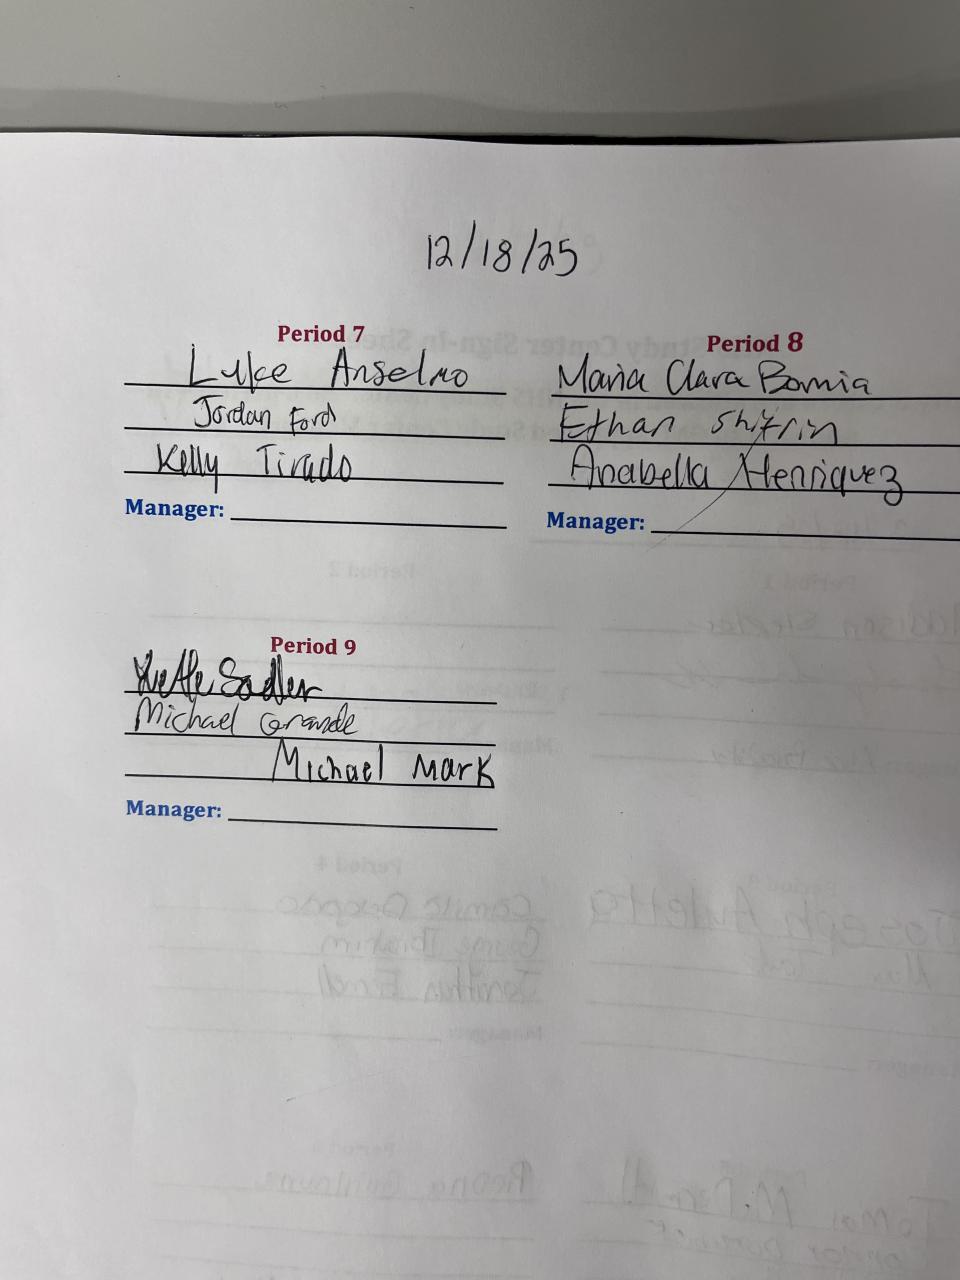 12/18/25
Period 7
Luke Anselmo
Jordan Ford
Kelly Tirado
Manager:
Period 8
Maria Clara Bornia
Ethan Shifrin
Anabella Henriquez
Manager:
Period 9
Sadler
Michael Grande
Michael Mark
Manager: